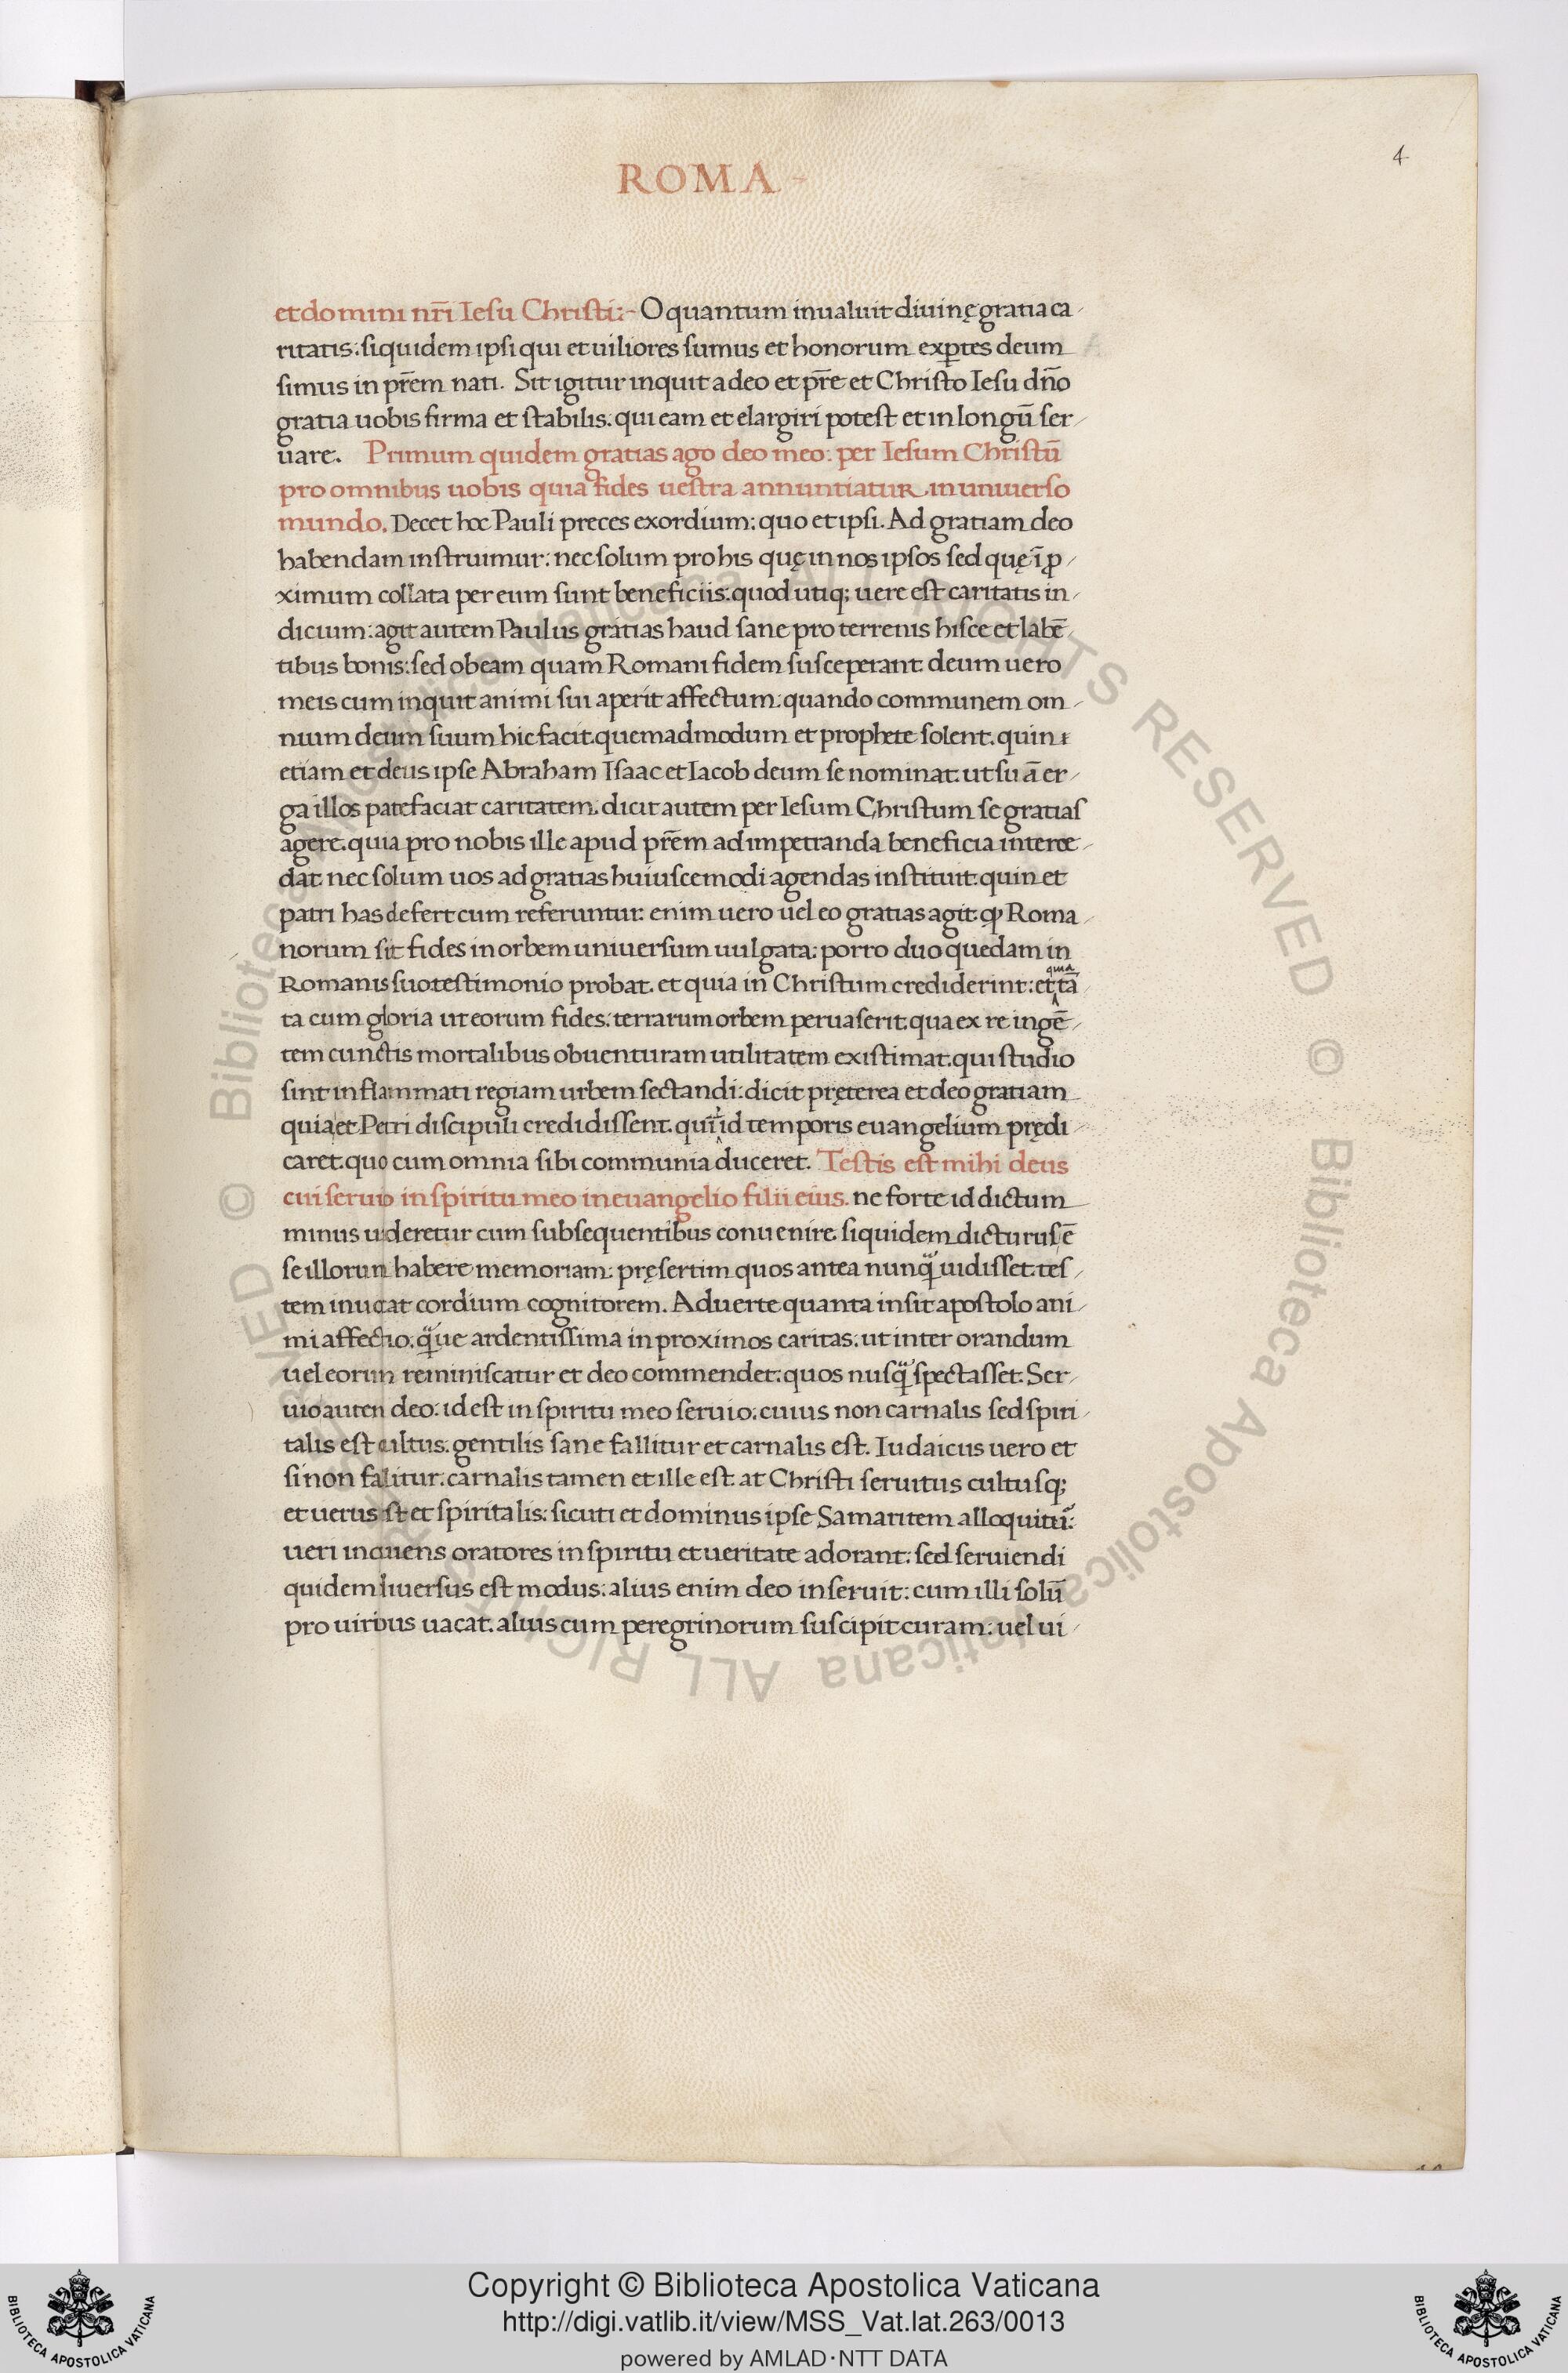 4
ROMA
et domini nr̄i Iesu Christi:- O quantum inualuit diuinę gratia ca
ritatis: siquidem ipsi qui et uiliores sumus et honorum exꝑtes deum
simus in pr̄em nati. Sit igitur inquit a deo et pr̄e et Christo Iesu dn̄o
gratia uobis firma et stabilis. qui eam et elargiri potest et in longū ser
uare. Primum quidem gratias ago deo meo: per Iesum Christū
pro omnibus uobis quia fides uestra annuntiatur in uniuerso
mundo. Decet hoc Pauli preces exordium: quo et ipsi. Ad gratiam deo
habendam instruimur: nec solum pro his quę in nos ipsos sed quę ī ꝓ
ximum collata per eum sunt beneficiis: quod utiq; uere est caritatis in
dicium: agit autem Paulus gratias haud sane pro terrenis hisce et labē
tibus bonis: sed ob eam quam Romani fidem susceperant. deum uero
meis cum inquit animi sui aperit affectum: quando communem om
nium deum suum hic facit. quemadmodum et prophete solent. quin
etiam et deus ipse Abraham Isaac et Iacob deum se nominat. ut suā er
ga illos patefaciat caritatem. dicit autem per Iesum Christum se gratias
agere. quia pro nobis ille apud pr̄em ad impetranda beneficia interce
dat. nec solum uos ad gratias huiuscemodi agendas instituit. quin et
patri has defert cum referuntur: enim uero uel eo gratias agit. ꝙ Roma
norum sit fides in orbem uniuersum uulgata: porro duo quedam in
Romanis suo testimonio probat. et quia in Christum crediderint: et quia tā
ta cum gloria ut eorum fides: terrarum orbem peruaserit. qua ex re ingē
tem cunctis mortalibus obuenturam utilitatem existimat. qui studio
sint inflammati regiam urbem sectandi: dicit pręterea et deo gratiam
quia et Petri discipuli credidissent. qui id temporis euangelium prędi
caret. quo cum omnia sibi communia duceret. Testis est mihi deus
cui seruio in spiritu meo in euangelio filii eius. ne forte id dictum
minus uideretur cum subsequentibus conuenire. siquidem dicturus ē
se illorum habere memoriam: pręsertim quos antea nunq̈ uidisset. tes
tem inuocat cordium cognitorem. Aduerte quanta insit apostolo ani
mi affectio. q̈ue ardentissima in proximos caritas. ut inter orandum
uel eorum reminiscatur et deo commendet: quos nusq̈ spectasset. Ser
uio autem deo: id est in spiritu meo seruio: cuius non carnalis sed spiri
talis est cultus: gentilis sane fallitur et carnalis est. Iudaicus uero et
si non fallitur: carnalis tamen et ille est. at Christi seruitus cultusq;
et uerus est et spiritalis: sicuti et dominus ipse Samaritem alloquitur:
ueri inquiens oratores in spiritu et ueritate adorant: sed seruiendi
quidem diuersus est modus: alius enim deo inseruit: cum illi solū
pro uiribus uacat. alius cum peregrinorum suscipit curam: uel ui
© Biblioteca Apostolica Vaticana ALL RIGHTS RESERVED © Biblioteca Apostolica Vaticana ALL RIGHTS RESERVED
Copyright © Biblioteca Apostolica Vaticana
http://digi.vatlib.it/view/MSS_Vat.lat.263/0013
powered by AMLAD·NTT DATA
BIBLIOTECA APOSTOLICA VATICANA
BIBLIOTECA APOSTOLICA VATICANA